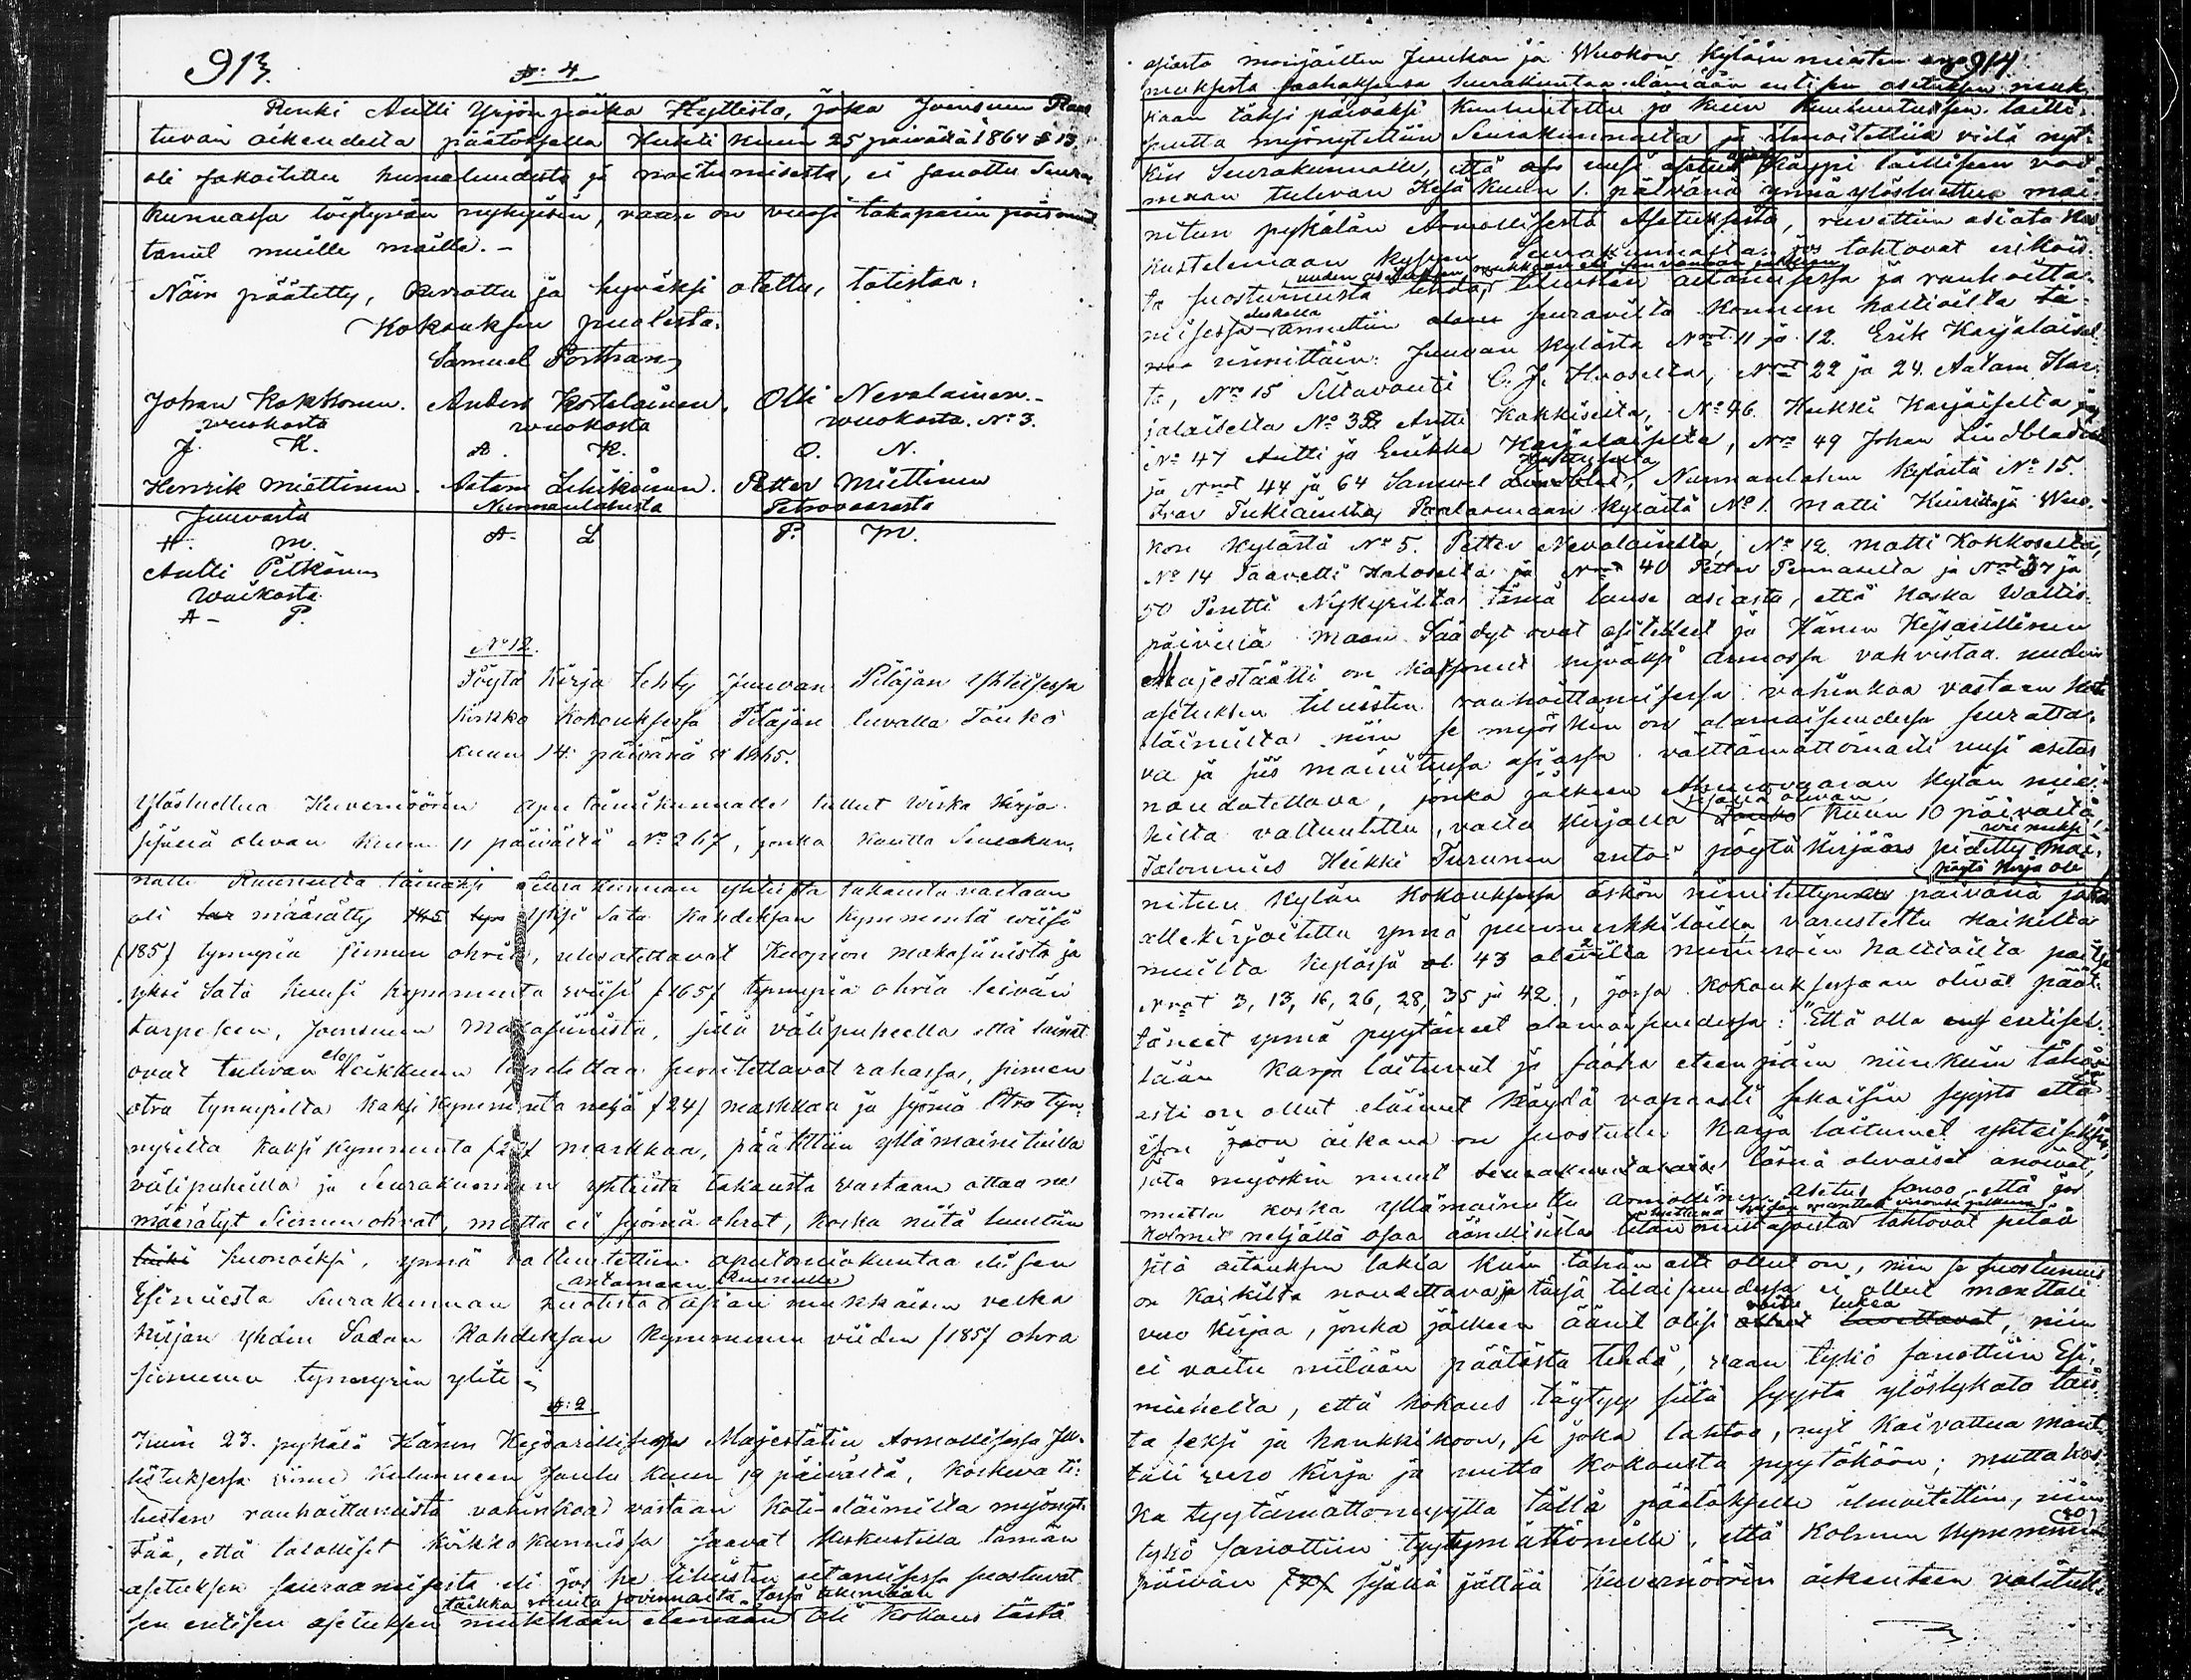 913.
§: 4
Renki Antti Yrjön poika Hyttistä, joka Joensuun Raas
tuvan oikeudelta päätöksellä Huhti kuun 25 päivältä 1864 § 13.
oli sakoitettu humaluudesta ja noitumisesta, ei sanottu Seura
kunnassa löytyvän nykyisin, vaan on vuosi takaperin pois muut
tanut muille maille. –
Näin päätetty, luettu ja hyväksi otettu, todistaa.
Kokouksen puolesta.
Samuel Porthan
Johan Kokkonen. Anders Kortelainen. Olli Nevalainen. –
wuokosta wuokosta wuokosta. No 3.
J. K. A. K. O. N.
Henrik Miettinen. Adam Lehikoinen. Petter Miettinen
Juuvasta Nunnanlahdesta Petrovaarasta
H. M. A. L. P. M.
Antti Pitkänen
Waikosta
A – P.
No 12.
Pöytä Kirja tehty Juuvan Pitäjän Yhteisessä
kirkko kokouksessa Pitäjän tuvalla Touko
kuun 14 päivänä 1865.
Ylösluettua Kuvernöörin apu toimikunnalle tullut wirka kirja
sisällä olevan kuun 11 päivältä No 267, jonka kautta Seurakun,
nalle Ruunulta lainaksi Seurakunnan yhteistä takausta vastaan
oli määrätty yksi sata kahdeksan kymmentä wiisi
(185) tynnyriä siemen ohria, ulosotettavat Kuopion makasiinista ja
yksi Sata kuusi kymmentä wiisi (165) tynnyriä ohria leivän
tarpeksen, Joensuun makasiinista, sillä välipuheella että lainat
ovat tulevan elo leikkuun suoritettavat rahassa, siemen
otra tynnyriltä kaksi kymmentä neljä (24) markkaa ja syömä Otra tyn,
nyriltä kaksi kymmentä markkaa, päätettiin yllämainitulla
välipuheella ja Seurakunnan yhteistä takausta vastaan ottaa ne
määrätyt Siemen ohrat, mutta ei syömä ohrat, koska niitä luultiin
huonoiksi, ynnä valtuutettiin aputoimikuntaa elikkä sen
antamaan Ruunulle
Esimiestä Seurakunnan puolesta asian mukkaisen velka
kirjan yhden Sadan kahdeksan kymmenen viiden (185) ohra
siemenen tynnyrin ylitse
§: 2
Kuin 23. pykälä Hänen Keisarillisessa Majestätin Armollisessa Ju
listuksessa viime kuluneen Joulu kuun 19 päivältä, koskeva ti:
lusten rauhoittamista vahinkoa vastaan koti-eläimiltä myönyt
tää, että talolliset kirkkokunnissa saavat keskustella tämän
asetuksen seuraamisesta eli jos he tilusten aitamisessa suostuvat
taikka muita sovinnoita tässä tekemään
sen entisen asetuksen mukkaan elämään oli kokous tästä
914
asiasta monjaitten Juukan ja Wuokon kyläin miesten ano
muksesta saahaksensa Seurakuntaa elämään entisen asetuksen muk
kaan täksi päiväksi kuuluutettu ja kuin kuuluutuksen laillis
suutta myönnytettiin Seurakunnalta ja ilmoitettiin vielä nyt:
kin Seurakunnalle, että uusi asetus käypi lailliseen voi
maan tulevan Kesä kuun 1. päivänä ynnä ylösluettua mai:
nitun pykälän Armollisesta Asetuksesta, ruvettiin asiata kes
kustelemaan kysyen Seurakunnalta, jos tahtovat erikois
uuden asetuksen mukkaan eli sen vanhan jälkeen
ta suostumusta tehdä, tilusten aitamisessa ja rauhoitta
misessa, annettiin seuravilta konnun haltioilta tä
nimittäin: Juuvan kylästä Nrot 11 ja 12. Erik Karjalaisel
ta, Nro 15 Siltavouti C. J. Huoselta, Nrot 22 ja 24 Aatam Kar:
jalaiselta No 32 Antti Kakkiselta, No 46. Heikki Karjaiselta ja
No 47 Antti ja Eerikka Karjalaiselta, Nro 49 Johan Lindbladilta
ja Nrot 44 ja 64 Samuel Nunnanlahen kylästä No 15.
Iivar Tukiaiselta, Paalasmaan kylästä No 1. Matti Kuiri ja Wuo,
kon kylästä No 5. Petter Nevalaiselta, No 12. Matti Kokkoselta,
No 14 Taavetti Halosella ja Nrot 40 Petter Pennaselta ja Nrot 37 ja
50 Pertti Nykyriltä tämä lause asiasta, että koska Waltio
päivillä maan Säädyt ovat asetelleet ja Hänen Keisarillinen
Majestäätti on katsonut hyväksi Armossa vahvistaa uuden
asetuksen tilusten rauhoittamisessa vahinkoa vastaan koti
eläimiltä niin se myöskin on alamaisuudessa seuratta:
va ja siis mainitussa asiassa välttämättömästi uusi asetus
noudatettava, jonka jälkeen Ahmovaaran kylän mie
sisällä olevan
hiltä valtuutettu, valta kirjalla kuun 10 päivältä,
Talonmies Heikki Turunen antoi pöytä kirjaan pidetty mai:
pöytä kirja oli
nitun kylän kokouksessa äskön nimitettynä päivänä jotta
allekirjoitettu ynnä puumerkkilöillä varustettu kaikilta
muilta kylässä 43 olevilla numeroin haltioilta paitsi
Nrot 3, 13, 16, 26, 28, 35 ja 42., jossa kokouksessaan olivat päät:
täneet ynnä pyytäneet alamaisuudessa: "Että olla entisel:
lään karja laitumet ja saaha eteenpäin niinkuin tähän
asti on ollut eläimet käydä vapaasti sekaisin syystä että
ison jaon aikana on suostuttu karja laitumet yhteiseksi,
jota myöskin muut seurakuntalaiset läsnä olevaiset anoivat,
mutta koska yllämainittu Armollinen Asetus sanoo, että jos
kolmet neljättä osaa äänellisistä tilan omistajoista tahtovat pitää
sitä aitauksen lakia kuin tähän asti ollut on, niin se suostumus
on kaikilta noudettava ja tässä tilaisuudessa ei ollut manttali
voito lukea
vero kirjaa, jonka jälkeen äänet olisi , niin
ei voitu mitään päätöstä tehdä, vaan tykö sanottiin Esi,
mieheltä, että kokous täytyy siitä syystä ylöslykätä tais
ta seksi ja hankkikoon, se joka tahtoo, nyt kaivattua mant
tali vero kirja ja uutta kokousta pyytäköön; mutta kos
ka tyytämättömyyttä tällä päätöksellä ilmoitettiin, niin
tykö sanottiin tyytymättömille, että kolmen kymmenen (30)
päivän sisällä jättää Kuvernöörin oikeuteen valituk